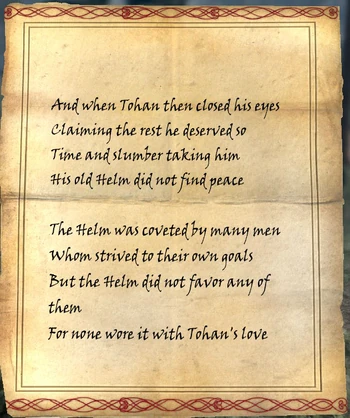 And when Tohan then closed his eyes
Claiming the rest he deserved so
Time and slumber taking him
His old Helm did not find peace
The Helm was coveted by many men
Whom strived to their own goals
But the Helm did not favor any of
them
For none wore it with Tohan's love